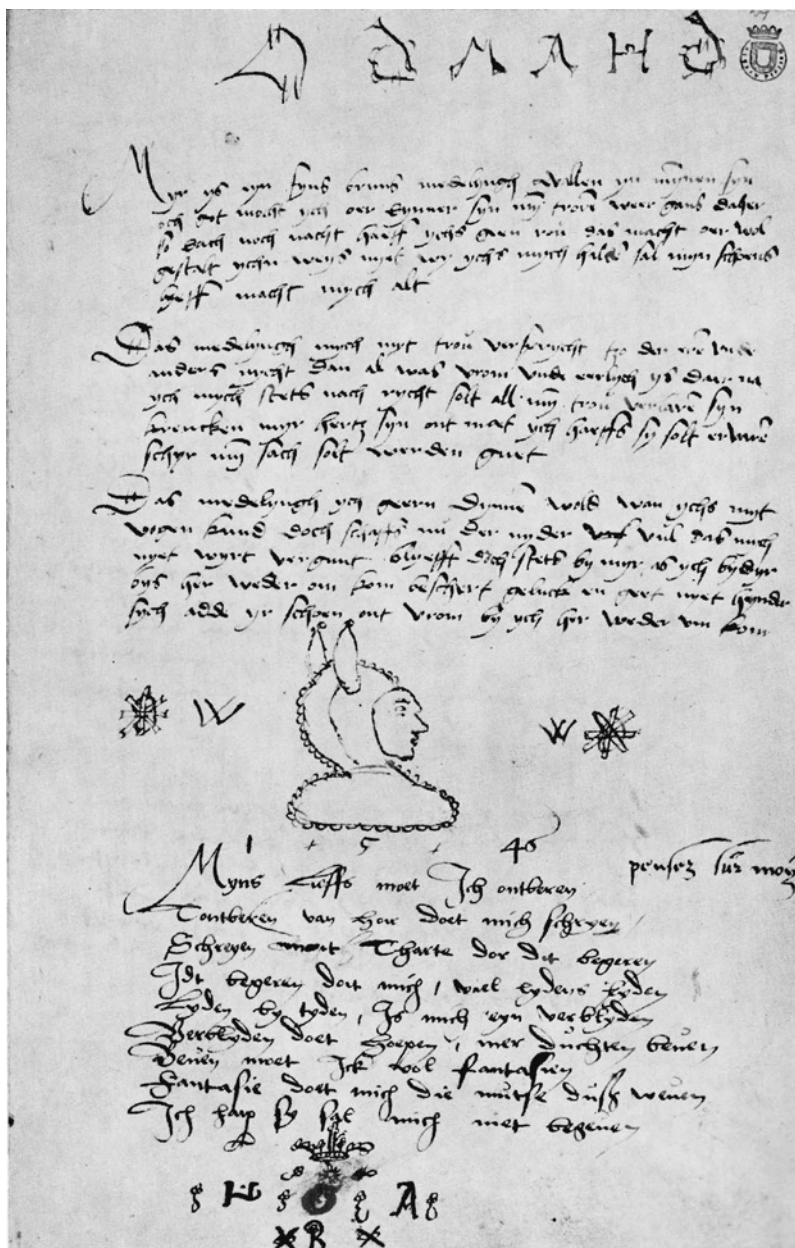 M A H
Myr ys yn syns bruns medelyngh gvallen yn mynen syn
och got mocht ych oer dynner syn my trore weer gans daher
so dach noch nacht haeff ychs geen rou das macht oer wol
gestalt ychn weys nyet wy ychs mych hilde sal myn schoens
lyeff macht mych alt
Das medelyngh mych nyt trou versprycht tzo der ere unde
anders nycht dan al was vrom unde eerlych ys daer na
ych mych stets nach rycht solt all my trou verlaren syn
krencken myr hertz syn ont maet ych haeffs sy solt erwere
schyr my sach solt werden guet
Das medelyngh ych geern dynne wold wan ychs myt
vogen kund doch schaffs nu der nyder vul das mich
nyet wyrt vergunt blyefft doch stets by myr as ych by dyr
bys her weder om kom beschert geluck en geet nyet hynder
sych adde yr schoen ont vrom by ych her weder um kom
W W
1 5 46
pensez sur moy
Myns Lieffs moet Ich ontberen
Tontberen van hoir doet mich schryen
Schreyen moit Tharte dor dit begeren
Idt begeren doit mich, viel lydens lyden
Lyden by tyden, Is mich eyn verblyden
Verblyden doet hoepen, mer duchten beven
Beven moet Ick vol fantasien
Fantasie doet mich die mutse duss weven
Ich hap sy sal mich niet begeven
H A
R